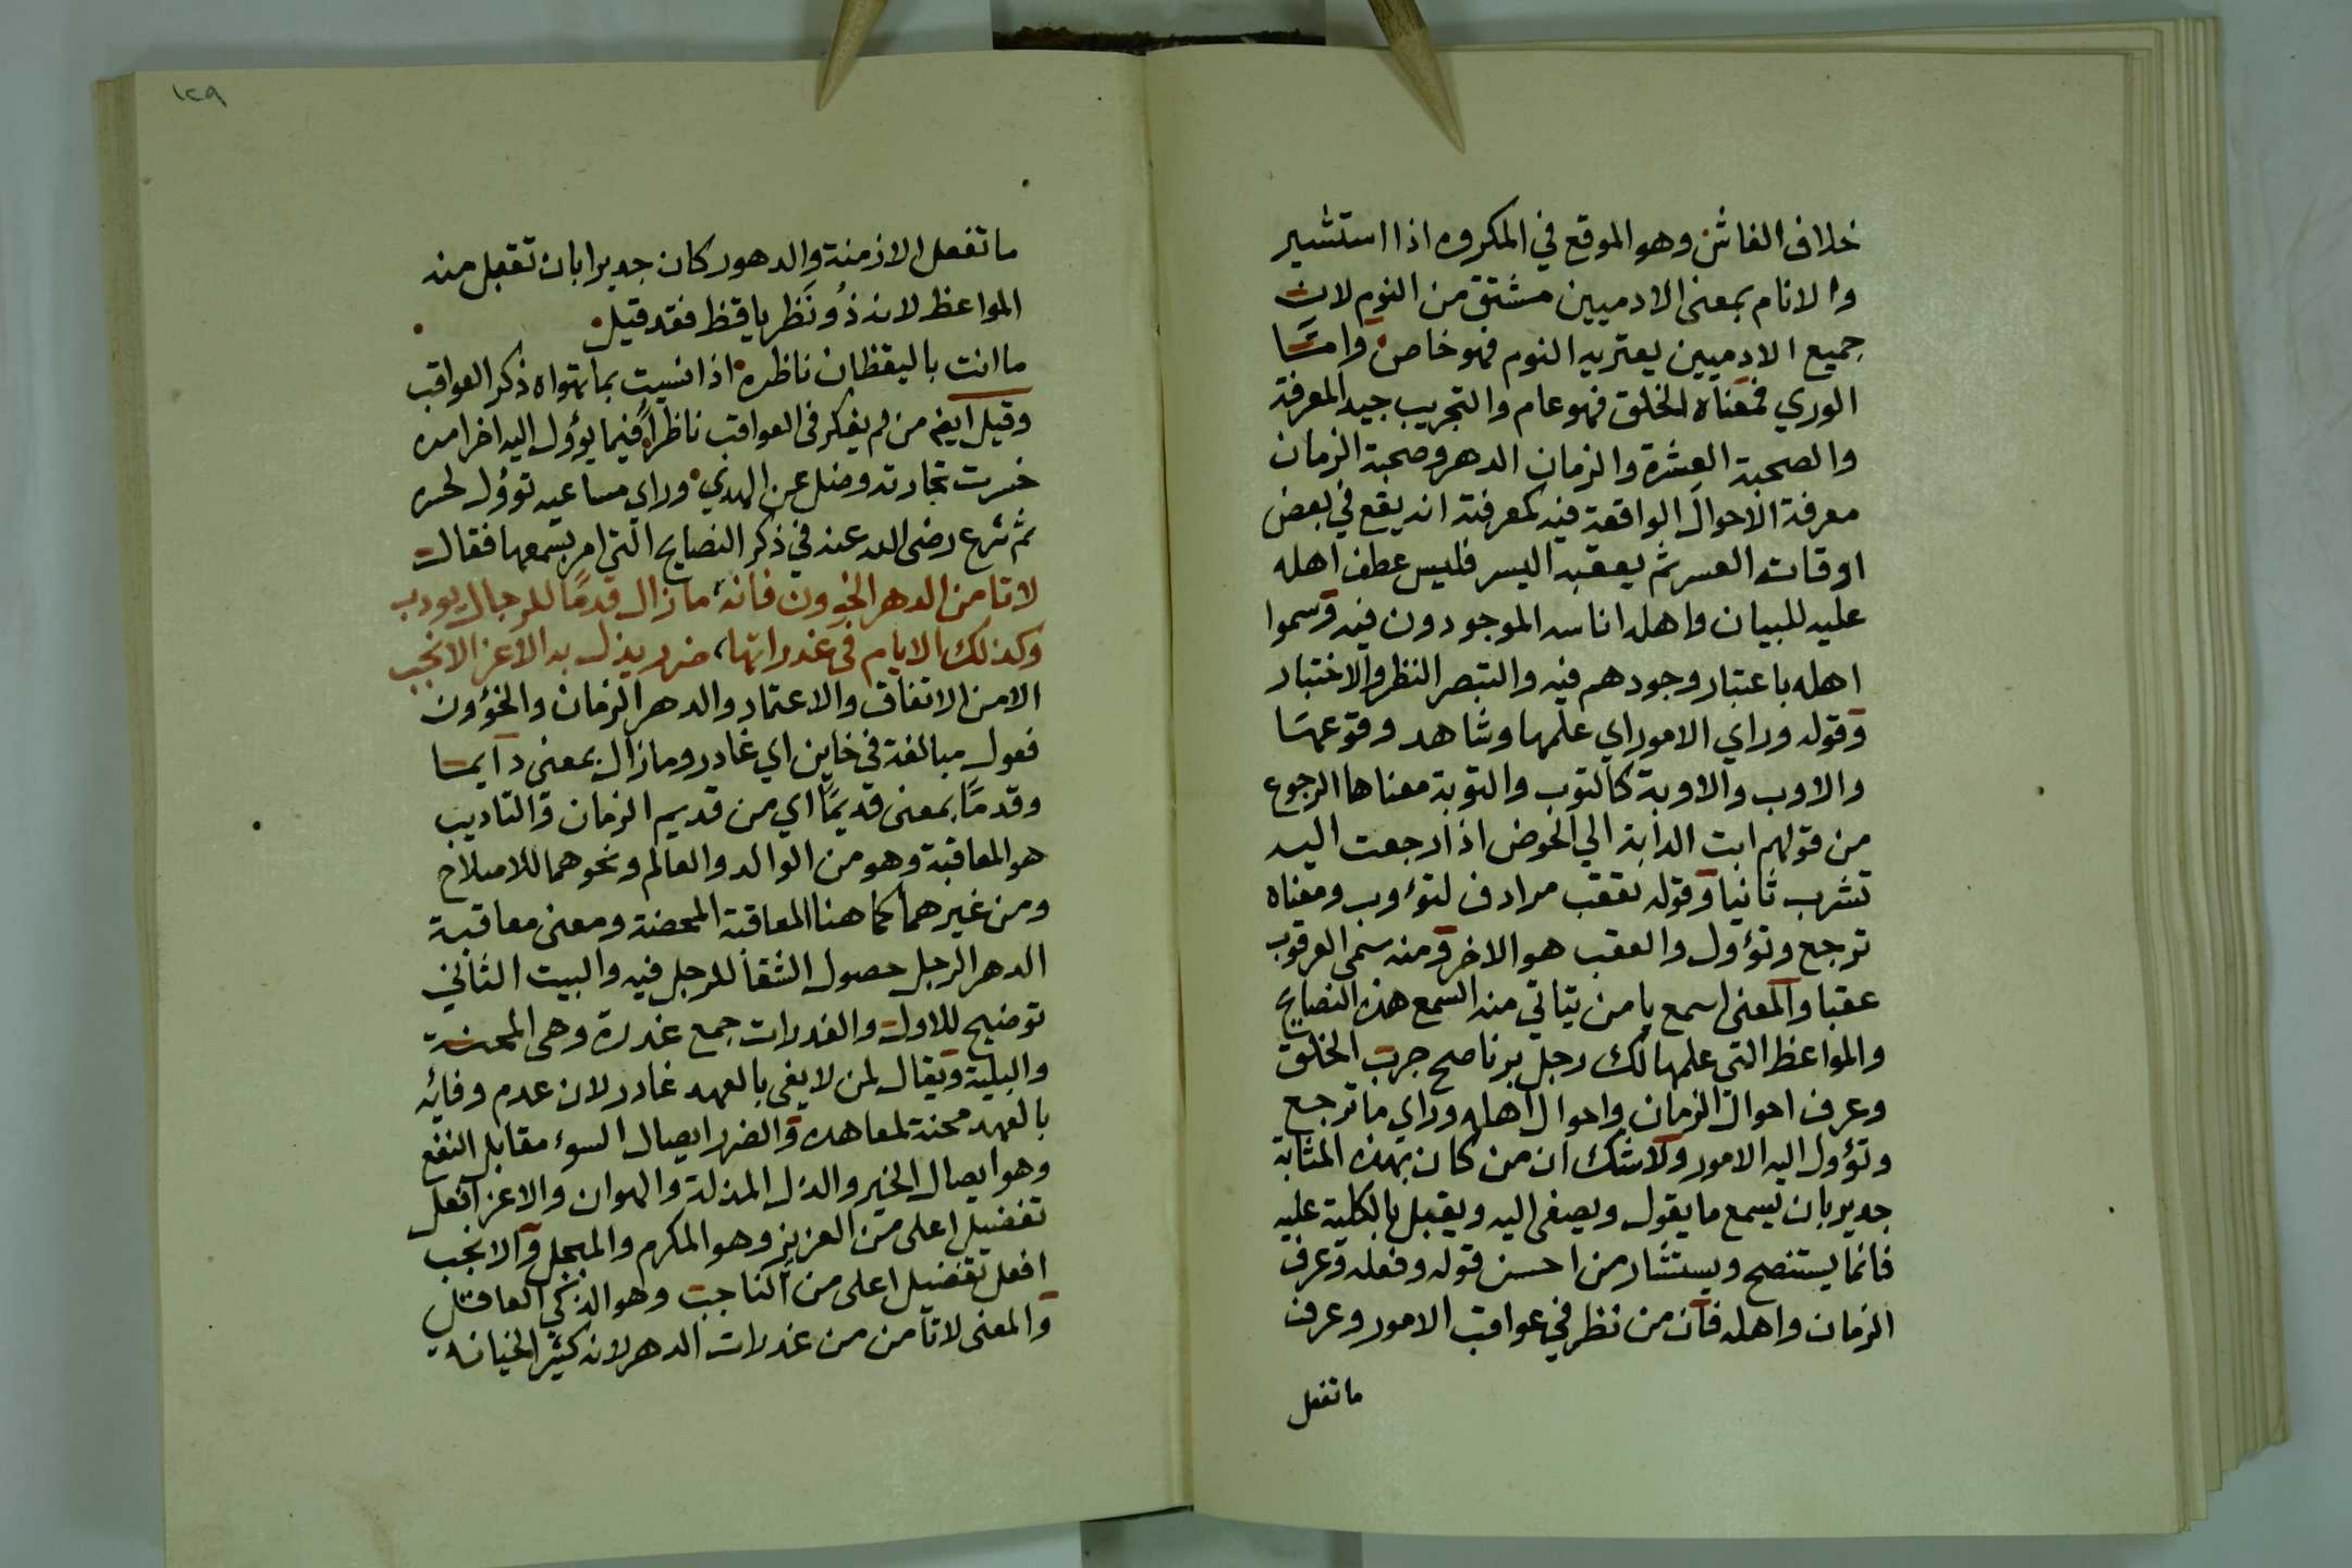 خلاف الغاش وهو الموقع في المكروه اذا استشير
والانام بمعنى الادميين مشتق من النوم لان
جميع الادميين يعتريه النوم فهو خاص وامّا
الوري فمعناه الخلق فهو عام والتجريب جيد المعرفة
والصحبة العشرة والزمان الدهر وصحبة الزمان
معرفة الاحوال الواقعة فيه كمعرفته انه يقع في بعض
اوقاته العسر ثم يعقبه اليسر فليس عطف اهله
عليه للبيان واهله اناسه الموجودون فيه وسموا
اهله باعتبار وجودهم فيه والتبصر النظر والاختبار
وقوله وراي الامور اي علمها وشاهد وقوعها
والاوب والاوبة كالتوب والتوبة معناها الرجوع
من قولهم ابت الدابة الي الحوض اذا رجعت اليه
تشرب ثانيا وقوله تعقب مرادف لتؤوب ومعناه
ترجع وتؤول والعقب هو الاخر ومنه سمى العرقوب
عقبا والمعنى اسمع يا من يتاتي منه السمع هذه النصايح
والمواعظ التي علمها لك رجل بر ناصح جرب الخلق
وعرف احوال الزمان واحوال اهله وراي ما ترجع
وتؤول اليه الامور ولا شك ان من كان بهذه المثابة
جدير بان يسمع ما يقول ويصغى اليه ويقبل بالكلية عليه
فانما يستنصح ويستشار من احسن قوله وفعله وعرف
الزمان واهله فان من نظر في عواقب الامور وعرف
ما تفعل
١٢٩
ما تفعل الازمنة والدهور كان جديرا بان تقبل منه
المواعظ لانه ذُو نَظر يا قظ فقد قيل
ما انت باليقظان ناظره اذا نسيت بما تهواه ذكر العواقب
وقيل ايضم من لم يفكر في العواقب ناظرا فيما يؤول اليه اخر امره
خسرت تجارته وضل عن الهدي وراي مساعيه تؤول لخسره
ثم شرع رضى الله عنه في ذكر النصايح التي امر بسمعها فقال
لا تامن الدهر الخؤون فانه، ما زال قدمًا للرجال يودب
وكذلك الايام في غدراتها، ضرر يذل به الاعز الانجب
الامن الاتفاق والاعتماد والدهر الزمان والخؤون
فعول مبالغة في خاين اي غادر وما زال بمعنى دايما
وقدمًا بمعنى قديمًا اي من قديم الزمان والتاديب
هو المعاقبة وهو من الوالد والعالم ونحوهما للاصلاح
ومن غيرهما كما هنا المعاقبة المحضة ومعنى معاقبة
الدهر الرجل حصول الشقا للرجل فيه والبيت الثاني
توضيح للاول والغدرات جمع غدرة وهى المحنة
والبلية ويقال لمن لا يفى بالعهد غادر لان عدم وفائه
بالعهد محنة لمعاهده والضرر ايصال السوء مقابل النفع
وهو ايصال الخير والذل المذلة والهوان والاعز افعل
تفضيل اعلى من العزيز وهو المكرم والمبجل والانجب
افعل تفضيل اعلى من الناجب وهو الذكي العاقل
والمعنى لا تامن من غدرات الدهر لانه كثير الخيانه